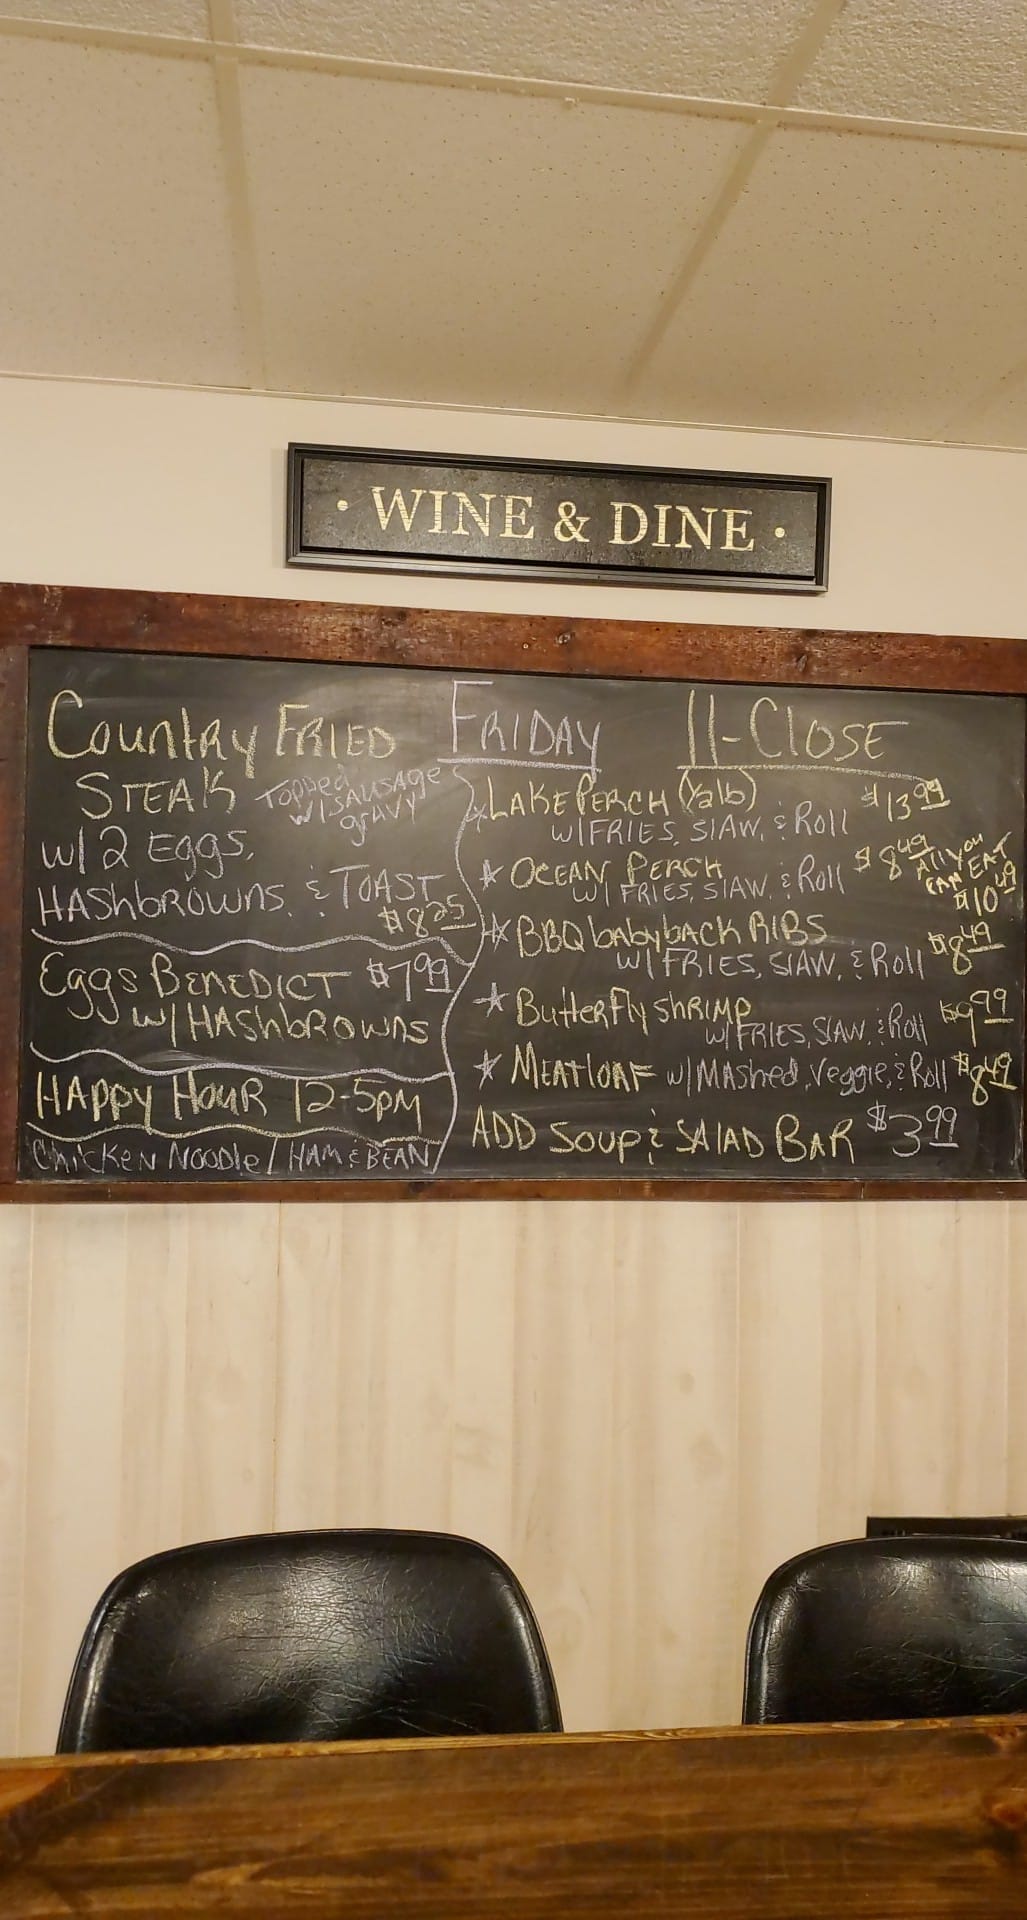 · WINE & DINE ·
Country FRIED
STEAK
Topped
w/SAUSAGE
gravy
w/2 Eggs,
HASHBROWNS, & TOAST
$8.25
Eggs BENEDICT $7.99
w/HASHBROWNS
HAPPY HOUR 12-5PM
Chicken Noodle / HAM & BEAN
FRIDAY 11-CLOSE
*LAKE PERCH (1/2lb) $13.99
w/FRIES, SLAW, & Roll
* OCEAN PERCH $8.49 All you
CAN EAT
$10.49
w/ FRIES, SLAW, & Roll
* BBQ babyback RIBS $8.49
w/FRIES, SLAW, & Roll
* Butterfly shrimp $9.99
w/FRIES, SLAW, & Roll
* MEATLOAF w/MAshed, Veggie, & Roll $8.49
ADD SOUP & SALAD BAR $3.99